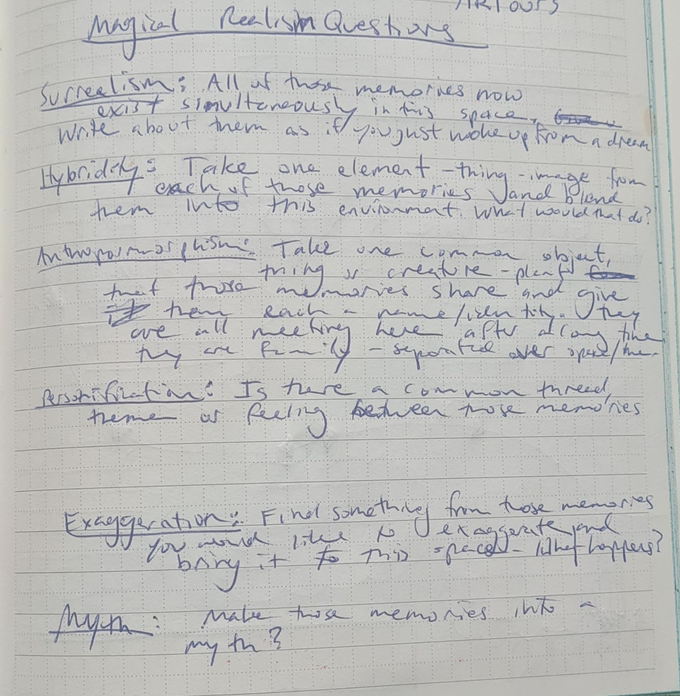 Magical Realism Questions
Surrealism: All of those memories now
exist simultaneously in this space.
Write about them as if you just woke up from a dream
Hybridity: Take one element - thing - image from
each of those memories and blend
them into this environment. What would that do?
Anthropormorphism: Take one common object,
thing or creature - plant
that those memories share and give
them each a name/identity. They
are all meeting here after a long time
they are family - separated over space/time
Personification: Is there a common thread,
theme or feeling between those memories
Exaggeration: Find something from those memories
you would like to exaggerate and
bring it to this space - What happens?
Myth: Make those memories into a
myth?